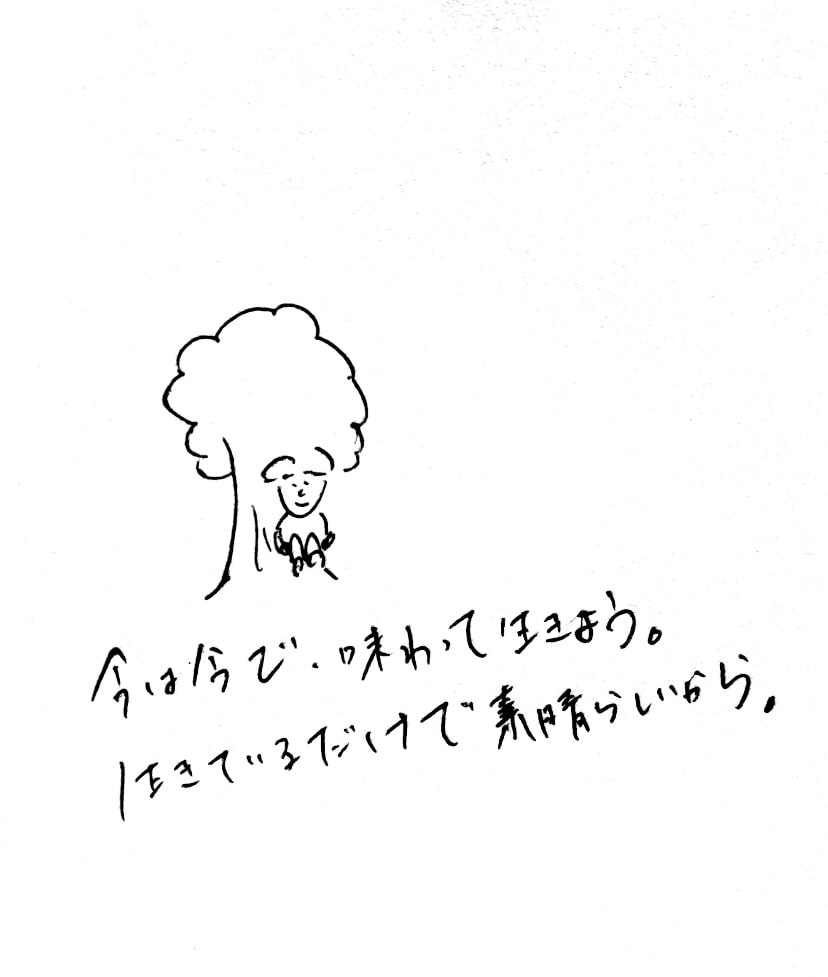 今は今で、味わって生きよう。
生きているだけで素晴らしいから。